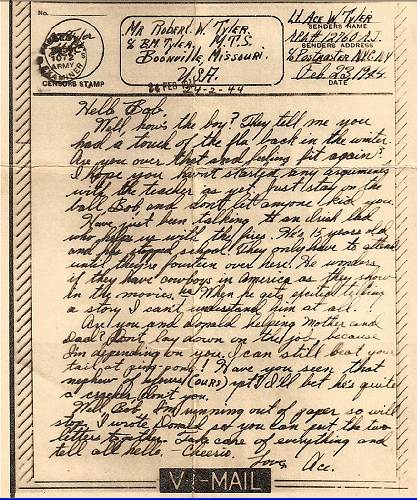 No.
1072
ARMY
EXAMINER
CENSORS STAMP
Mr Robert W. Tyler
% B.M. Tyler, M.T.S.
Boonville, Missouri.
U.S.A.
28 FEB
4-2-44
Lt. Ace W. Tyler
SENDERS NAME
SENDERS ADDRESS
% Postmaster N.Y.C. N.Y.
Feb 23, 1944
DATE
Hello Bob,
Well, how's the boy? They tell me you
had a touch of the flu back in the winter.
Are you over that and feeling fit again?
I hope you havnt started any arguments
with the teacher as yet. Just stay on the
ball, Bob, and don't let anyone kid you.
Have just been talking to an Irish lad
who helps us with the fires. He's 15 years old
and has stopped school. They only have to attend
until they're fourteen over here. He wonders
if they have cowboys in America as they show
in the movies. When he gets excited telling
a story I can't understand him at all.
Are you and Donald helping Mother and
Dad? Don't lay down on the job because
I'm depending on you. I can still beat your
tail at ping pong! Have you seen that
nephew of yours (OURS) yet? I'll bet he's quite
a cracker, don't you.
Well Bob, I'm running out of paper so will
stop. I wrote Donald so you can put the two
letters together. Take care of everything and
tell all hello. - Cheerio.
Love,
Ace.
V···-MAIL